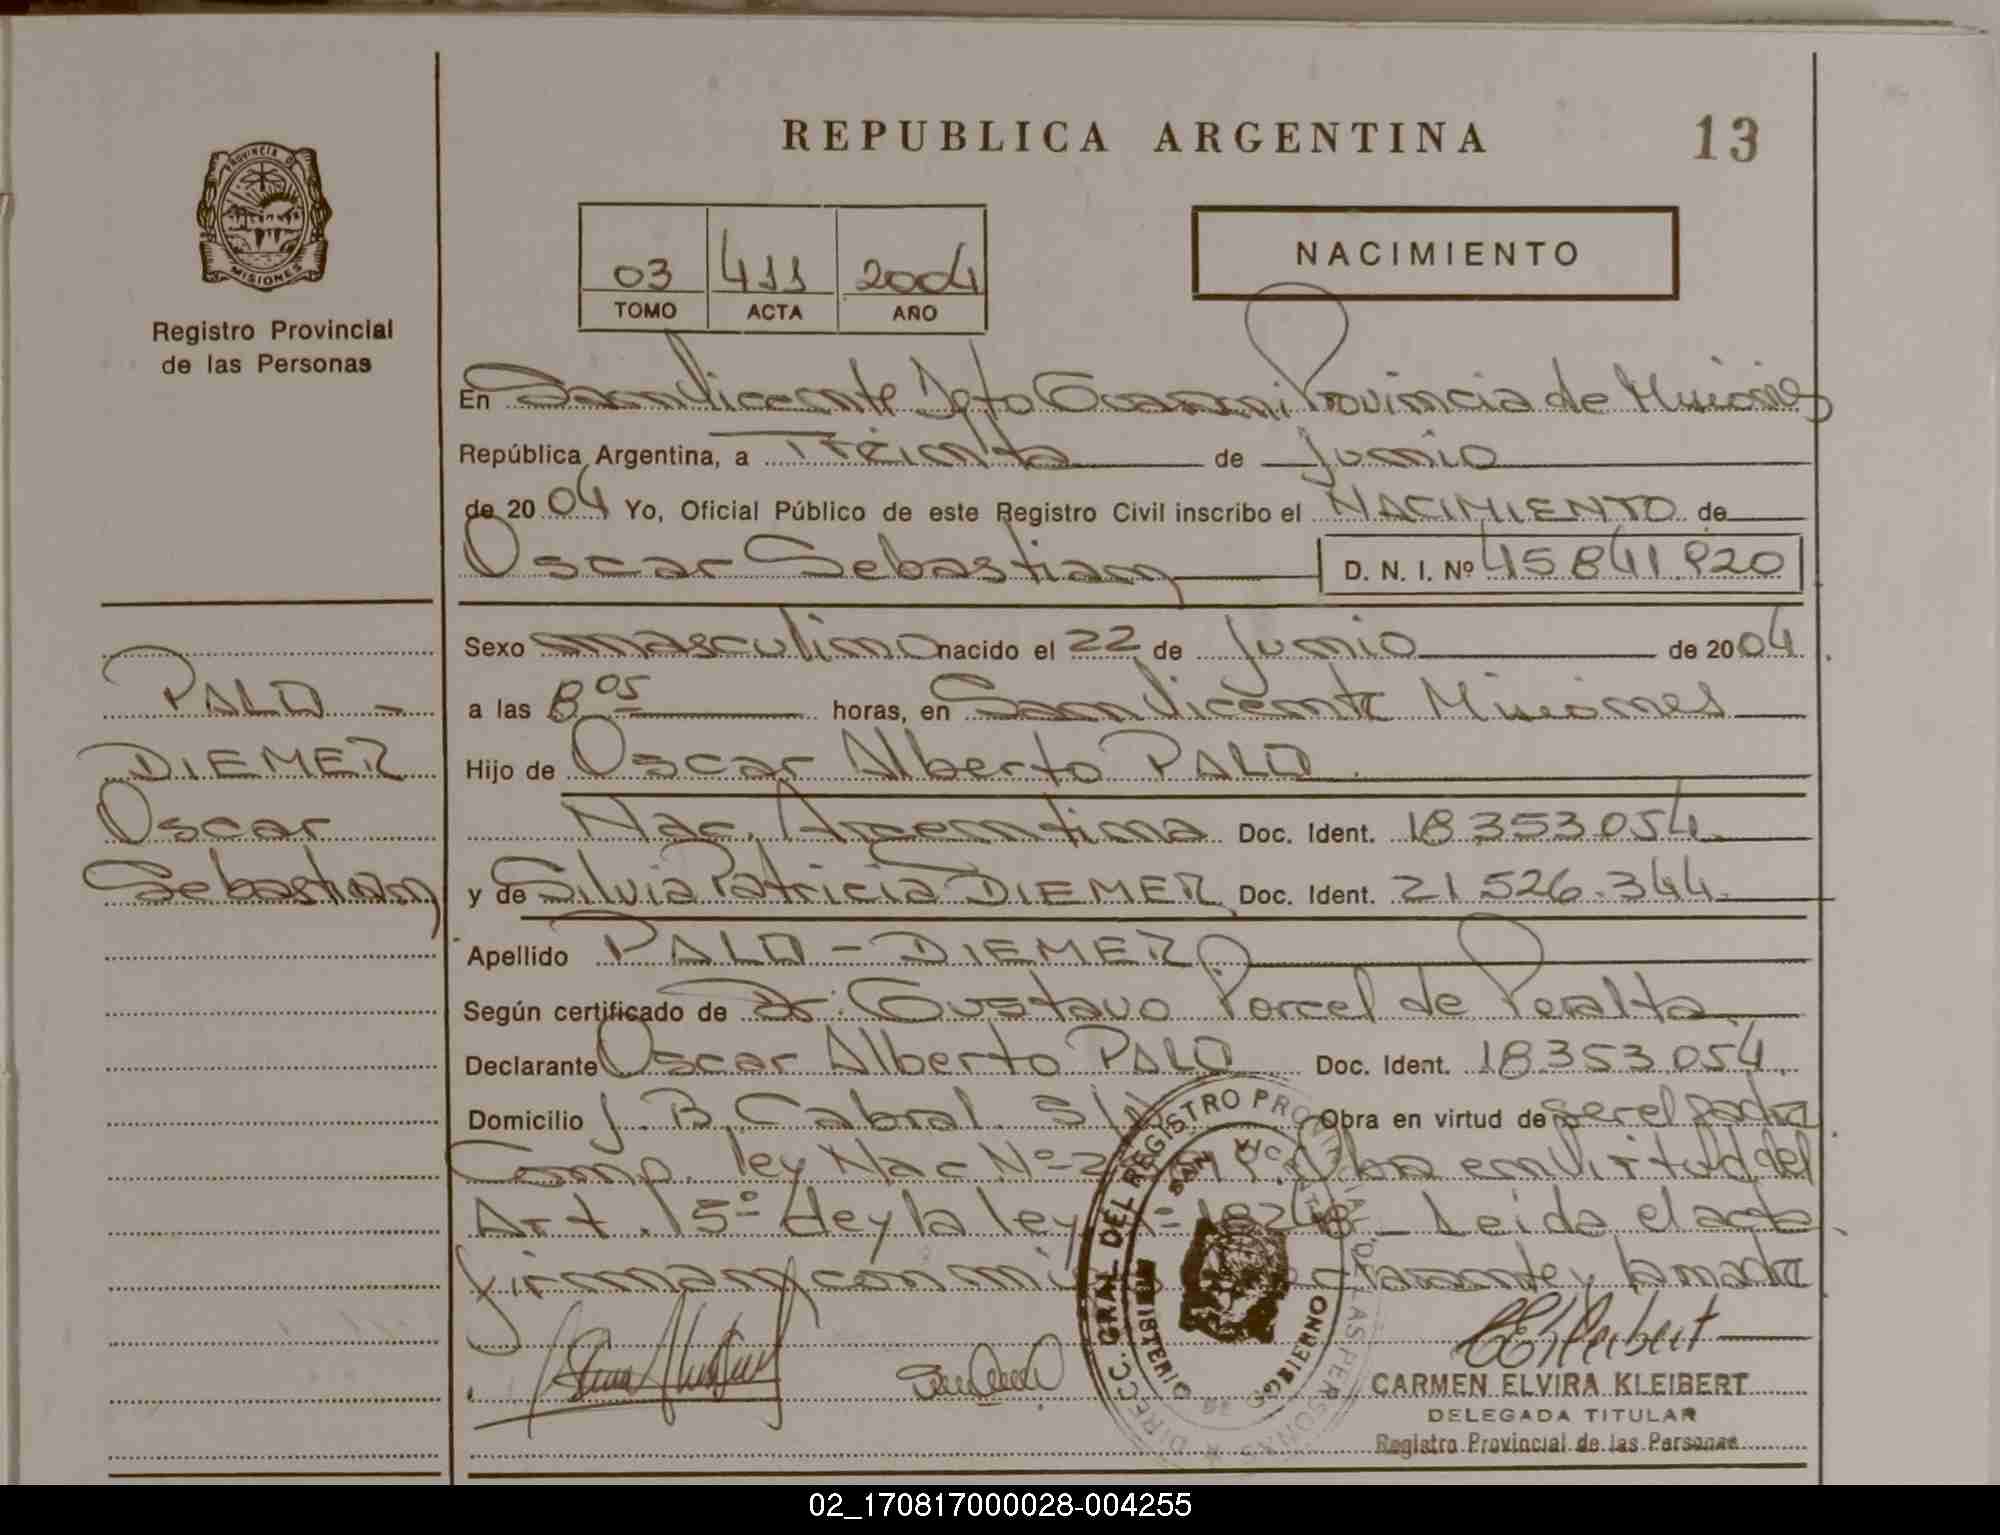 REPUBLICA ARGENTINA
13
PROVINCIA DE
MISIONES
Registro Provincial
de las Personas
03 411 2004
TOMO ACTA AÑO
NACIMIENTO
En San Vicente Dpto Guaraní Provincia de Misiones
República Argentina, a Treinta de Junio
de 20 04 Yo, Oficial Público de este Registro Civil inscribo el NACIMIENTO de
Oscar Sebastian D. N. I. Nº 45 841 920
Sexo masculino nacido el 22 de Junio de 20 04
a las 8 05 horas, en San Vicente Misiones
Hijo de Oscar Alberto PALO
Nac. Argentina Doc. Ident. 18 353 054
y de Silvia Patricia DIEMER Doc. Ident. 21 526.344.
Apellido PALO - DIEMER
Según certificado de Dr. Gustavo Porcel de Peralta
Declarante Oscar Alberto PALO Doc. Ident. 18 353 054
Domicilio J. B. Cabral S/N Obra en virtud de ser el padre
Comp. ley Nac Nº Obra en Virtud del
Art. 15º de la ley 18248 - Leida el acta
firman con mi y la madre
PALO -
DIEMER
Oscar
Sebastian
DIRECC. GRAL. DEL REGISTRO PROVINCIAL DE LAS PERSONAS
SAN VICENTE
MINISTERIO DE GOBIERNO
CEKleibert
CARMEN ELVIRA KLEIBERT
DELEGADA TITULAR
Registro Provincial de las Personas
02_170817000028-004255